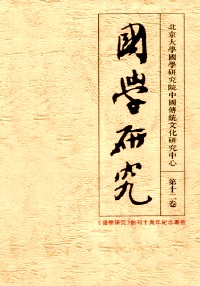 北京大學國學研究院中國傳統文化研究中心
第十二卷
國學研究
《國學研究》創刊十周年紀念專號